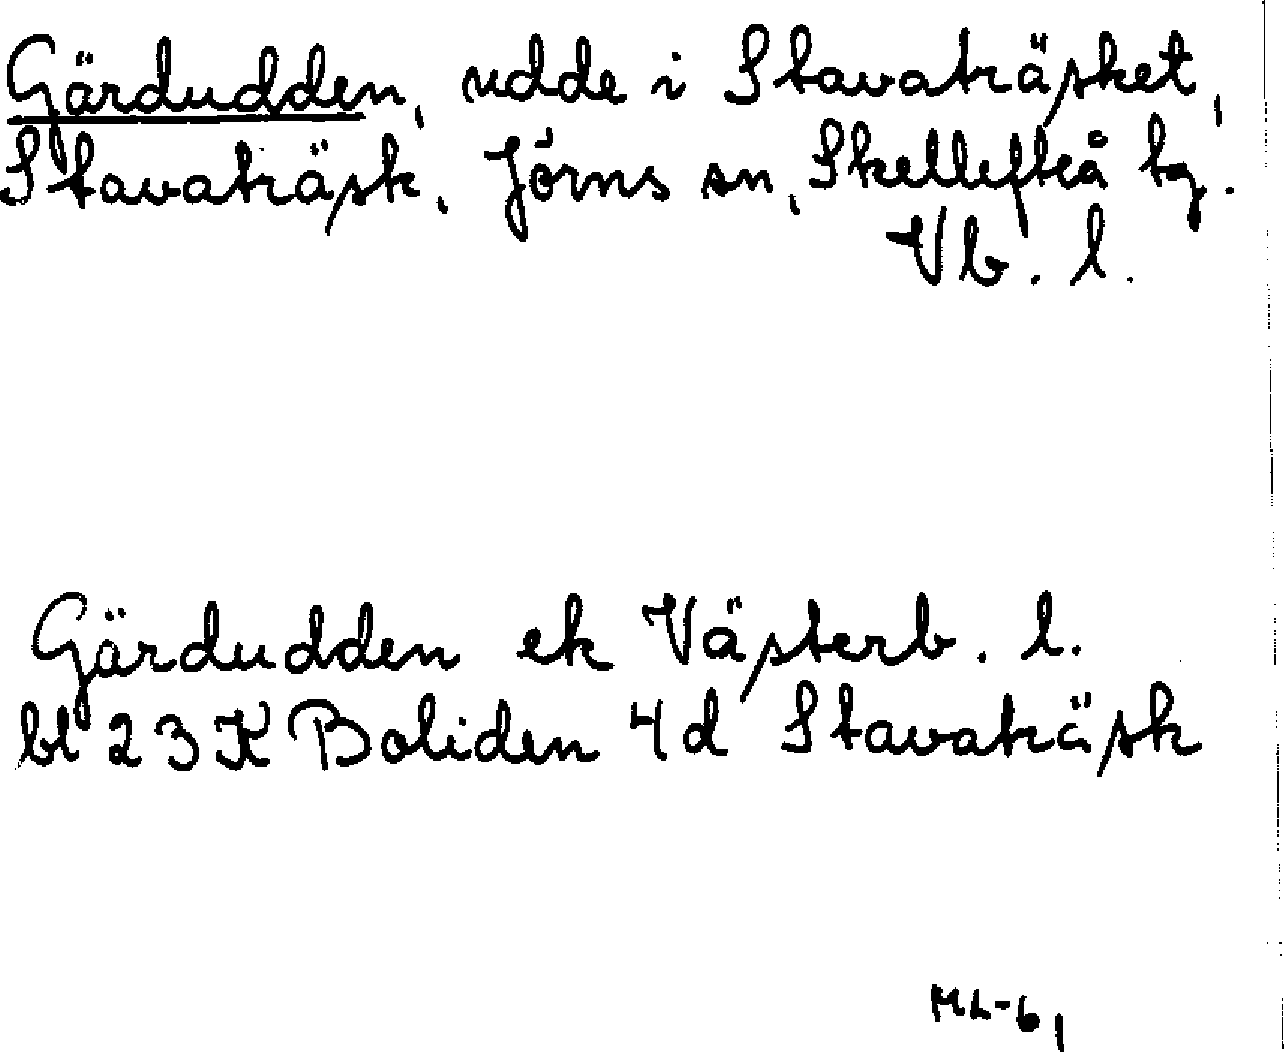 Gärdudden, udde i Stavaträsket,
Stavaträsk, Jörns sn, Skellefteå tg.
Vb. l.
Gärdudden ek Västerb. l.
bl 23 K Boliden 4d Stavaträsk